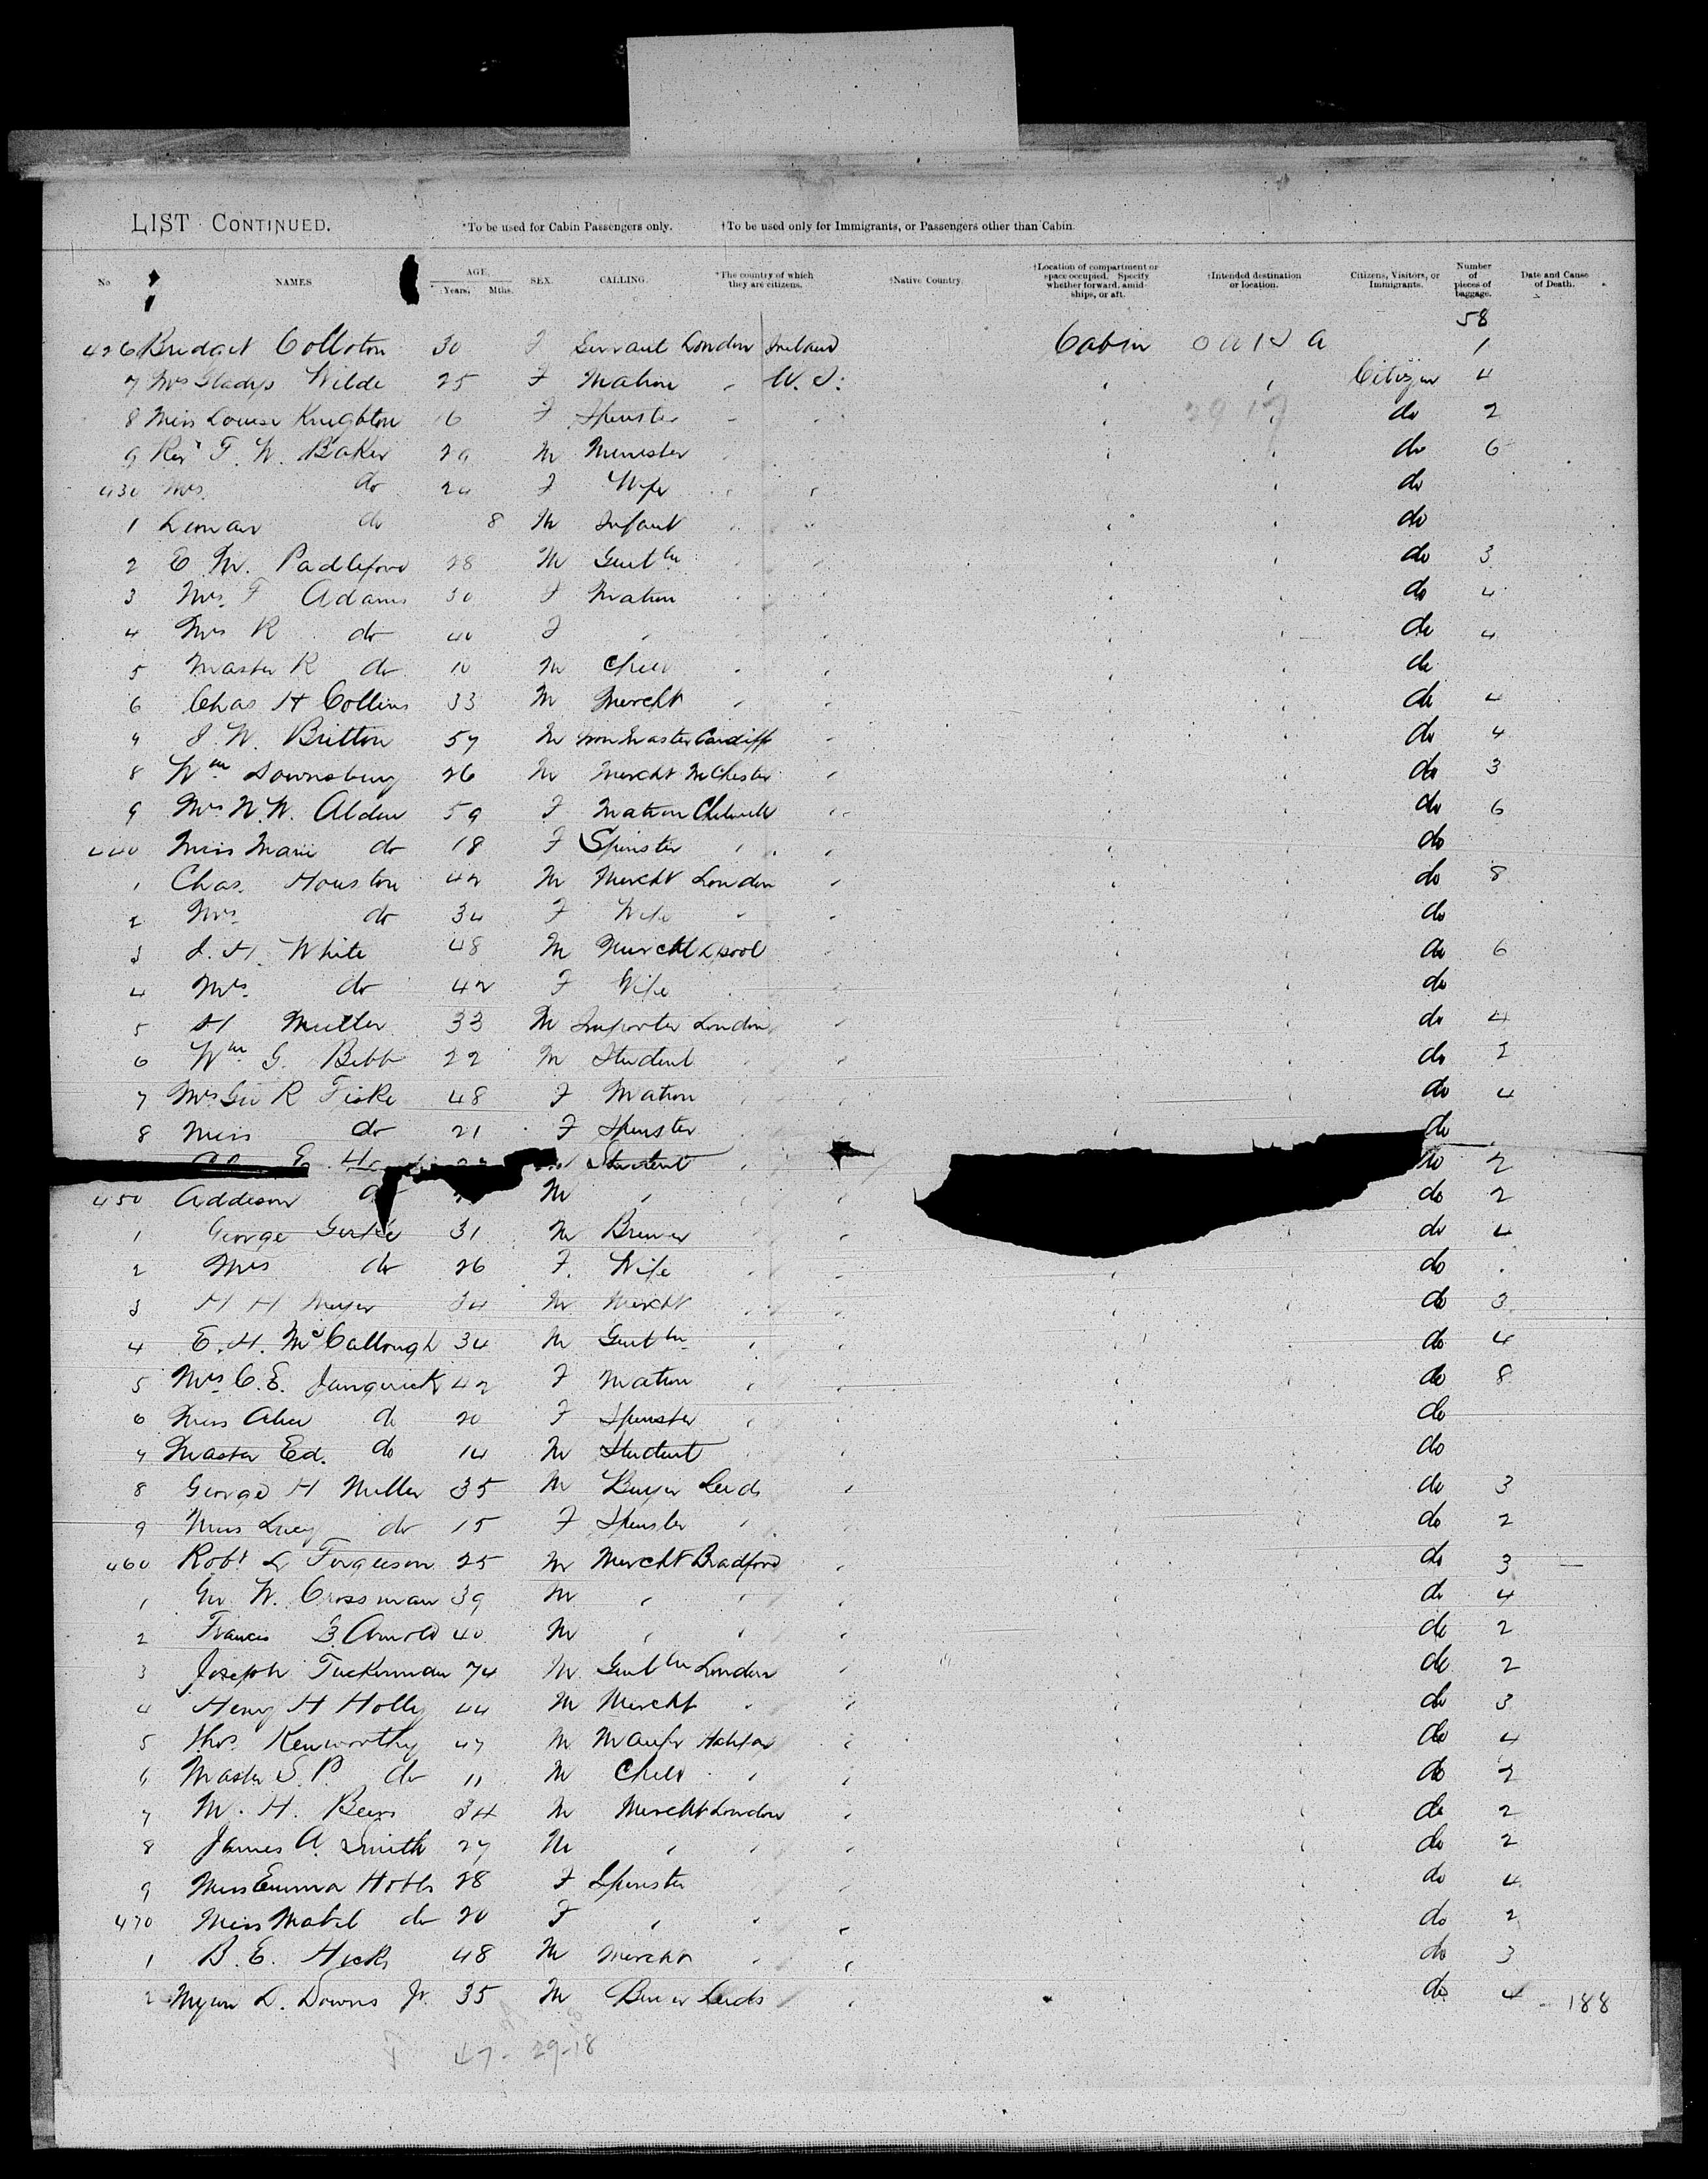 LIST CONTINUED. *To be used for Cabin Passengers only. †To be used only for Immigrants, or Passengers other than Cabin.
No NAMES AGE. Years. Mths. SEX. CALLING. *The country of which they are citizens. †Native Country. †Location of compartment or space occupied. Specify whether forward, amidships, or aft. †Intended destination or location. Citizens, Visitors, or Immigrants. Number of pieces of baggage. Date and Cause of Death.
58
426 Bridget Colloton 30 F Servant London Ireland Cabin 1
7 Mrs Gladys Wilde 25 F Matron Citizen 4
8 Miss Louise Knighton 16 F Spinster do 2
9 Rev F. W. Baker 29 M Minister do 6
430 Mrs do F Wife do
1 do 8 M Infant do
2 E. M. Padleford 28 M Gentln do 3
3 Mrs F Adams 30 F Matron do 4
4 Mrs R do 40 F " do 4
5 Master R do 10 M Child do
6 Chas H Collins 33 M Mercht do 4
7 J. W. Britton 57 M Iron Master Cardiff do 4
8 Wm Townsbury 26 M Mercht MChester do 3
9 Mrs W. W. Alden 59 F Matron do 6
440 Miss Marie do 18 F Spinster do
1 Chas. Houston 42 M Mercht London do 8
2 Mrs do 34 F Wife do
3 J. H. White 48 M Mercht Lpool do 6
4 Mrs. do 42 F Wife do
5 H Muller 33 M Importer London do 4
6 Wm G. Bibb 22 M Student do 2
7 Mrs Geo R Fiske 48 F Matron do 4
8 Miss do 21 F Spinster do
E. Student do 2
450 Addison do M " do 2
1 George Gerke 31 M Brewer do 4
2 Mrs do 26 F. Wife do
3 H H Meyer 34 M Mercht do 3
4 E. H. McCallough 34 M Gentln do 4
5 Mrs C. E. 42 F Matron do 8
6 Miss Alice do 20 F Spinster do
7 Master Ed. do 14 M Student do
8 George H Miller 35 M Buyer Leeds do 3
9 Miss Lucy do 15 F Spinster do 2
460 Robt L Ferguson 25 M Mercht Bradford do 3
1 Geo W. Crossman 39 M " do 4
2 Francis B. Arnold 40 M " do 2
3 Joseph Tuckerman 74 M Gentln London do 2
4 Henry H Holly 44 M Mercht do 3
5 Thos. Kenworthy 47 M Manfr Halifax do 4
6 Master S. P. do 11 M Child do 2
7 M. H. Beers 34 M Mercht London do 2
8 James A. Smith 27 M " do 2
9 Miss Emma Hobbs 28 F Spinster do 4
470 Miss Mabel do 20 F " do 2
1 B. E. Hicks 48 M Mercht do 3
2 Myron L. Downs Jr. 35 M Buyer Leeds do 4 188
47 - 29-18